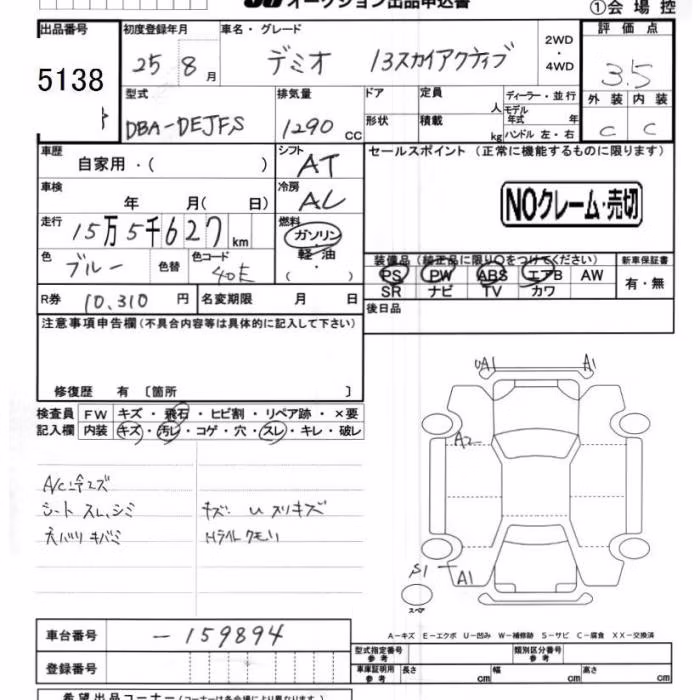 オークション出品申込書
①会場控
出品番号 初度登録年月 車名・グレード 評価点
5138 25 8月 デミオ 13スカイアクティブ 2WD・4WD 3.5
型式 排気量 ドア 定員 人 ディーラー・並行 外装 内装
DBA-DEJFS 1290 CC 形状 積載 kg モデル年式 年 ハンドル 左・右 C C
車歴 自家用・( ) シフト AT セールスポイント (正常に機能するものに限ります)
車検 年 月( 日) 冷房 AC
NOクレーム・売切
走行 15万5千627km 燃料 ガソリン・軽油・( )
色 ブルー 色替 色コード 40E
装備品 (純正品に限り○をつけてください) 新車保証書
PS PW ABS エアB AW 有・無
SR ナビ TV カワ
R券 10,310円 名変期限 月 日 後日品
注意事項申告欄 (不具合内容等は具体的に記入して下さい)
修復歴 有 〔箇所 〕
検査員 FW キズ・飛石・ヒビ割・リペア跡・×要
記入欄 内装 キズ・汚レ・コゲ・穴・スレ・キレ・破レ
UA1 A1
A2
A/C冷エズ
シート スレ、シミ キズ. U スリキズ
天バリ キバミ Hライト クモリ
S1 A1
スペア
A−キズ E−エクボ U−凹み W−補修跡 S−サビ C−腐食 XX−交換済
車台番号 -159894
型式指定番号 参考 類別区分番号 参考
登録番号 車庫証明用 参考 長さ cm 幅 cm 高さ cm
希望出品コーナー